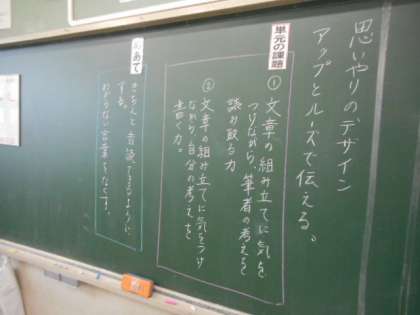 思いやりのデザイン
アップとルーズで伝える。
単元の課題
① 文章の組み立てに気を
つけながら、筆者の考えを
読み取る力
② 文章の組み立てに気をつけ
ながら、自分の考えを
書く力。
めあて
きちんと音読できるように
する。
わからない言葉をなくす。